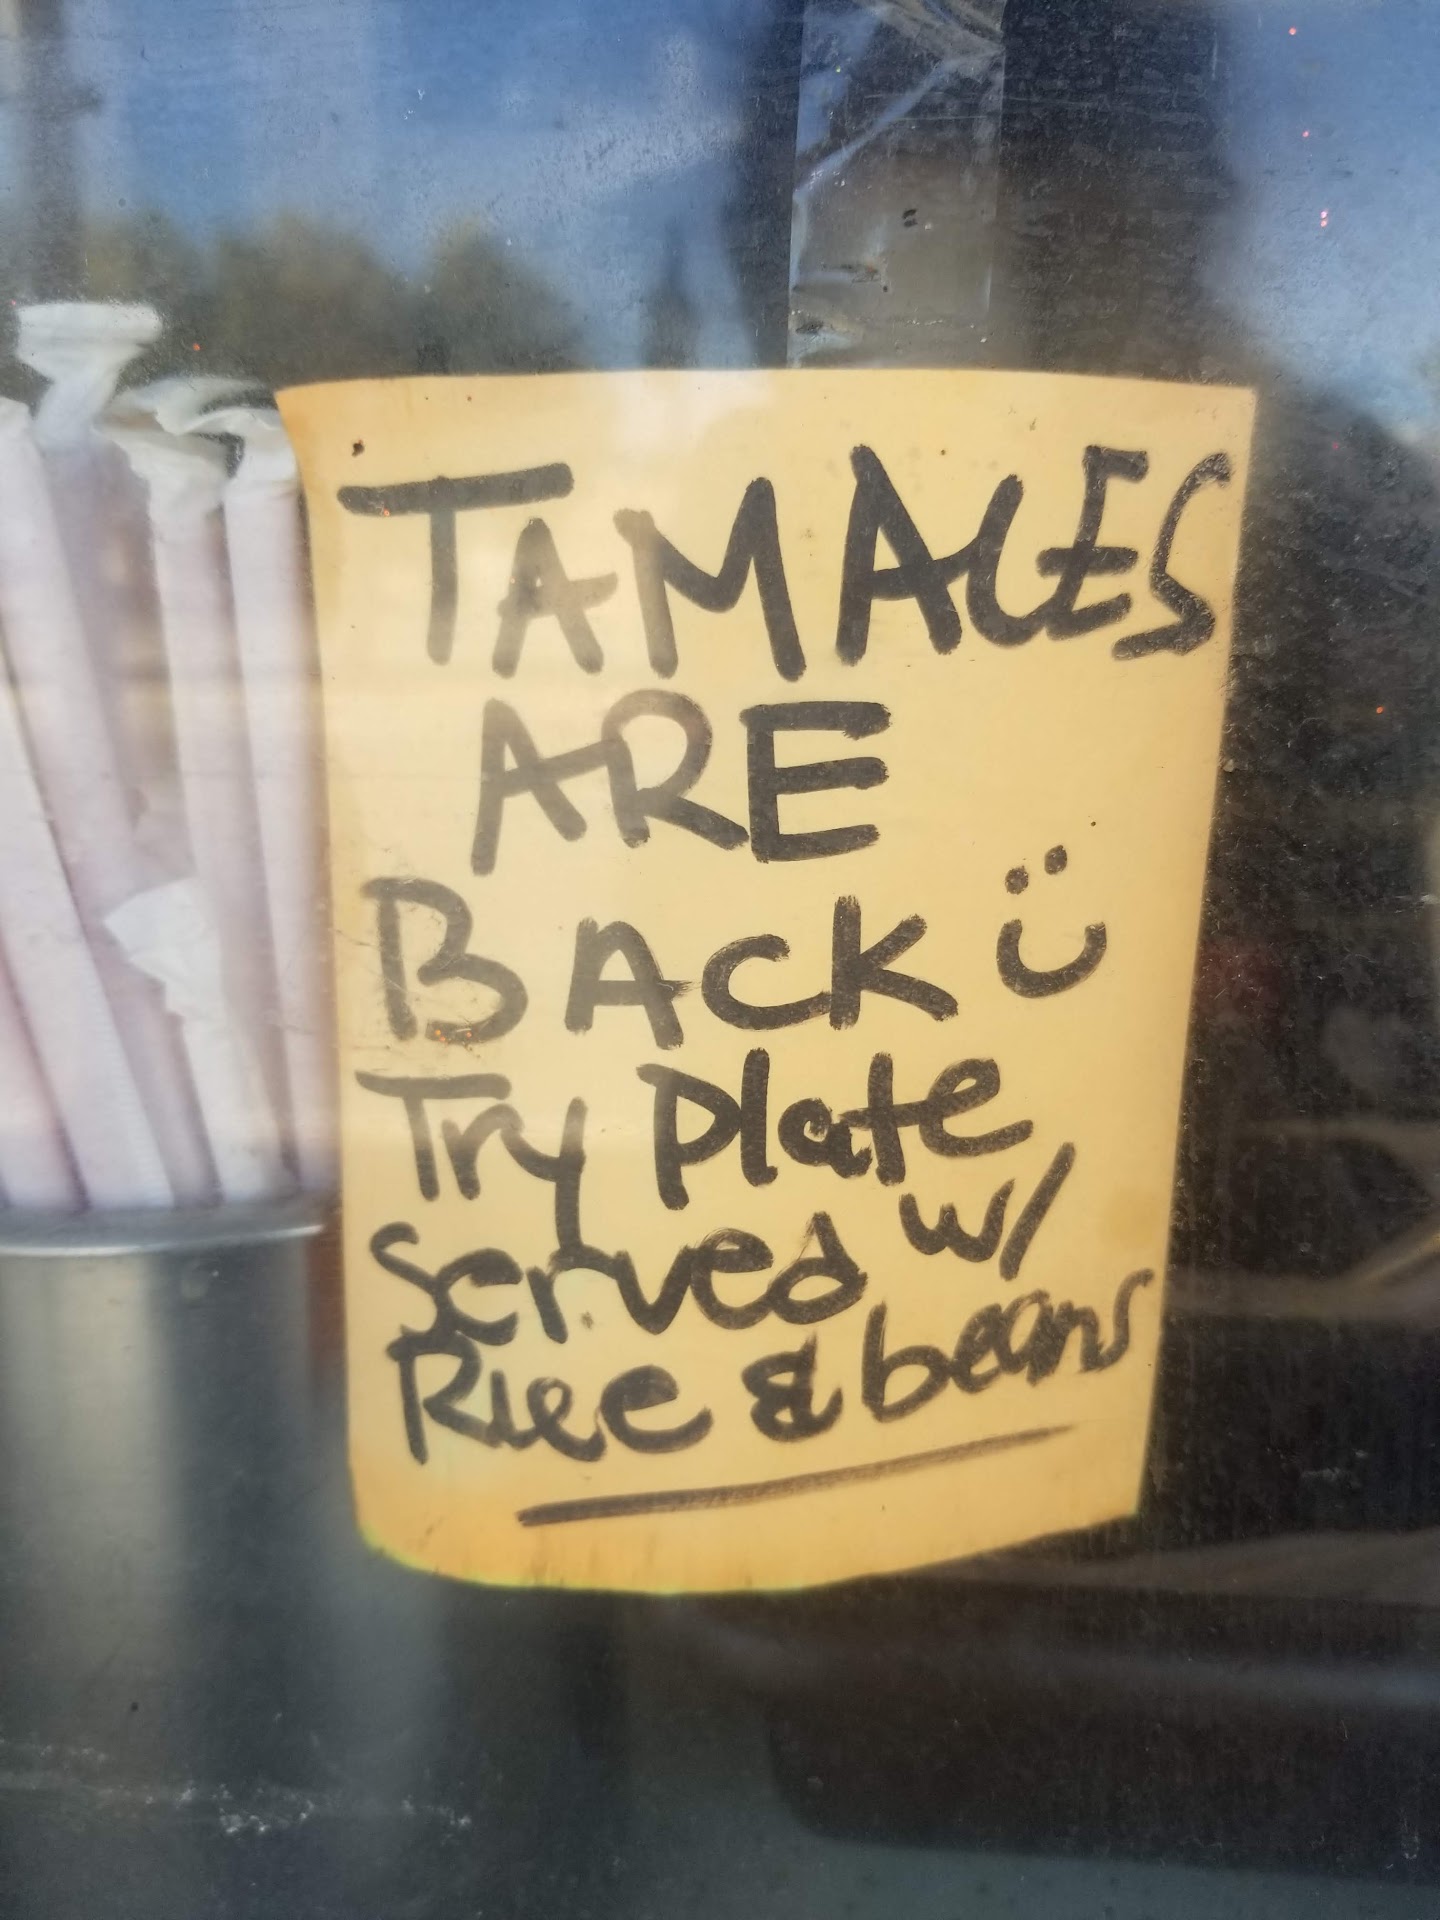 TAMALES
ARE
BACK :)
Try Plate
Served w/
Rice & beans